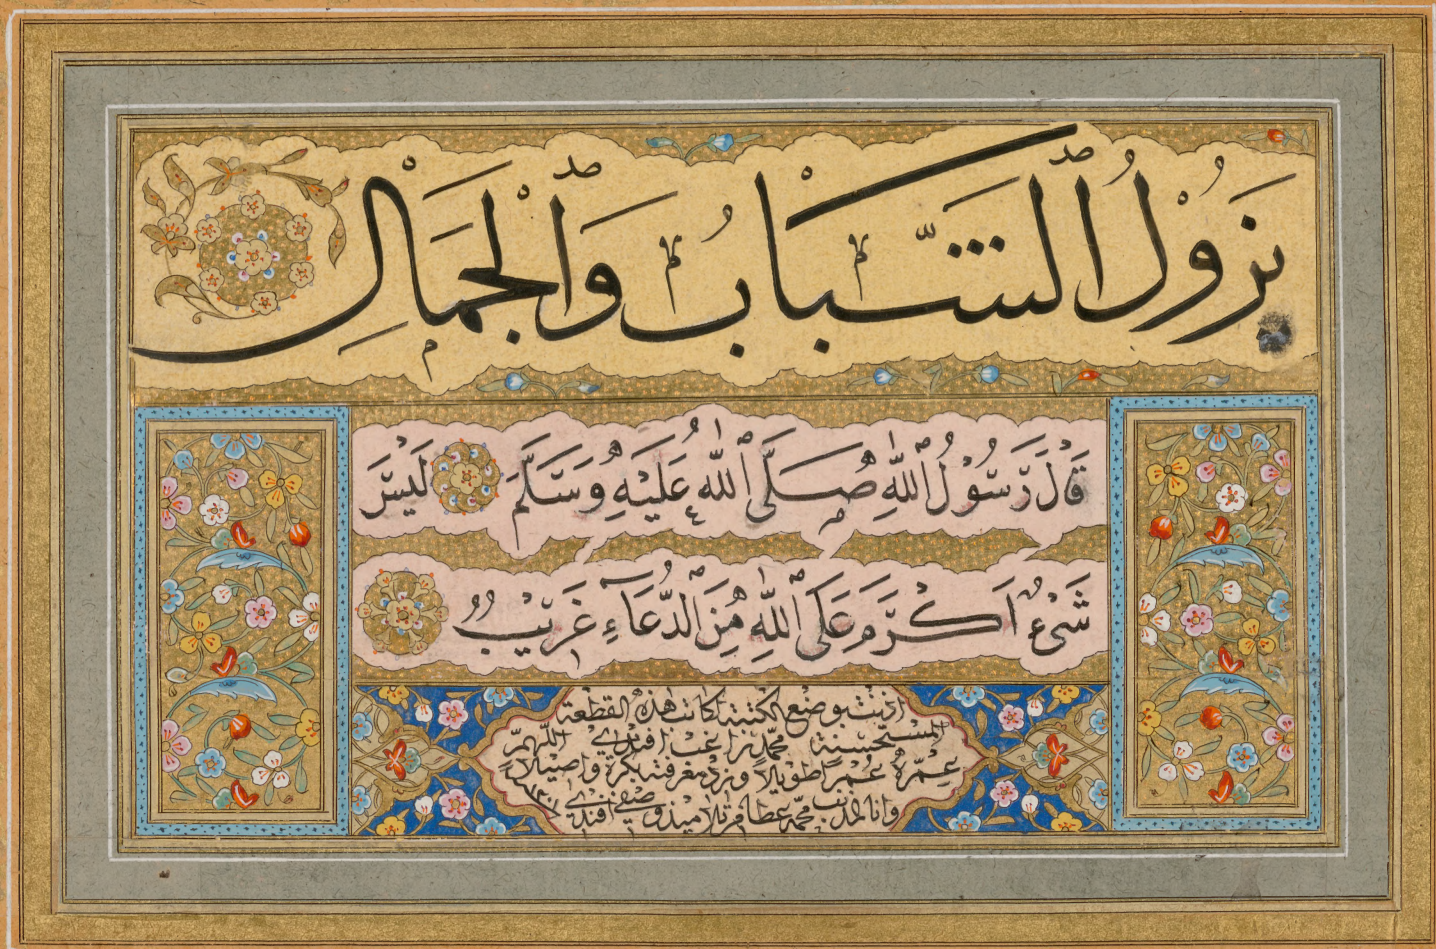 نَزُوْلُ الشَّبَابُ وَالْجَمَالِ
قَالَ رَسُوْلُ اللّٰهِ صَلَّى اللّٰهُ عَلَيْهِ وَسَلَّمَ لَيْسَ
شَيْءٌ اَكْرَمَ عَلَى اللّٰهِ مِنَ الدُّعَاءِ غَرِيْبٌ
اذنت بوضع الكتبة لكاتب هذه القطعة
المستحسنة محمد راغب افندي اللهم
عمره عمرا طويلا وزد معرفته بكرة واصيلا
وانا المذنب محمد عطا من تلاميذ وصفي افندي